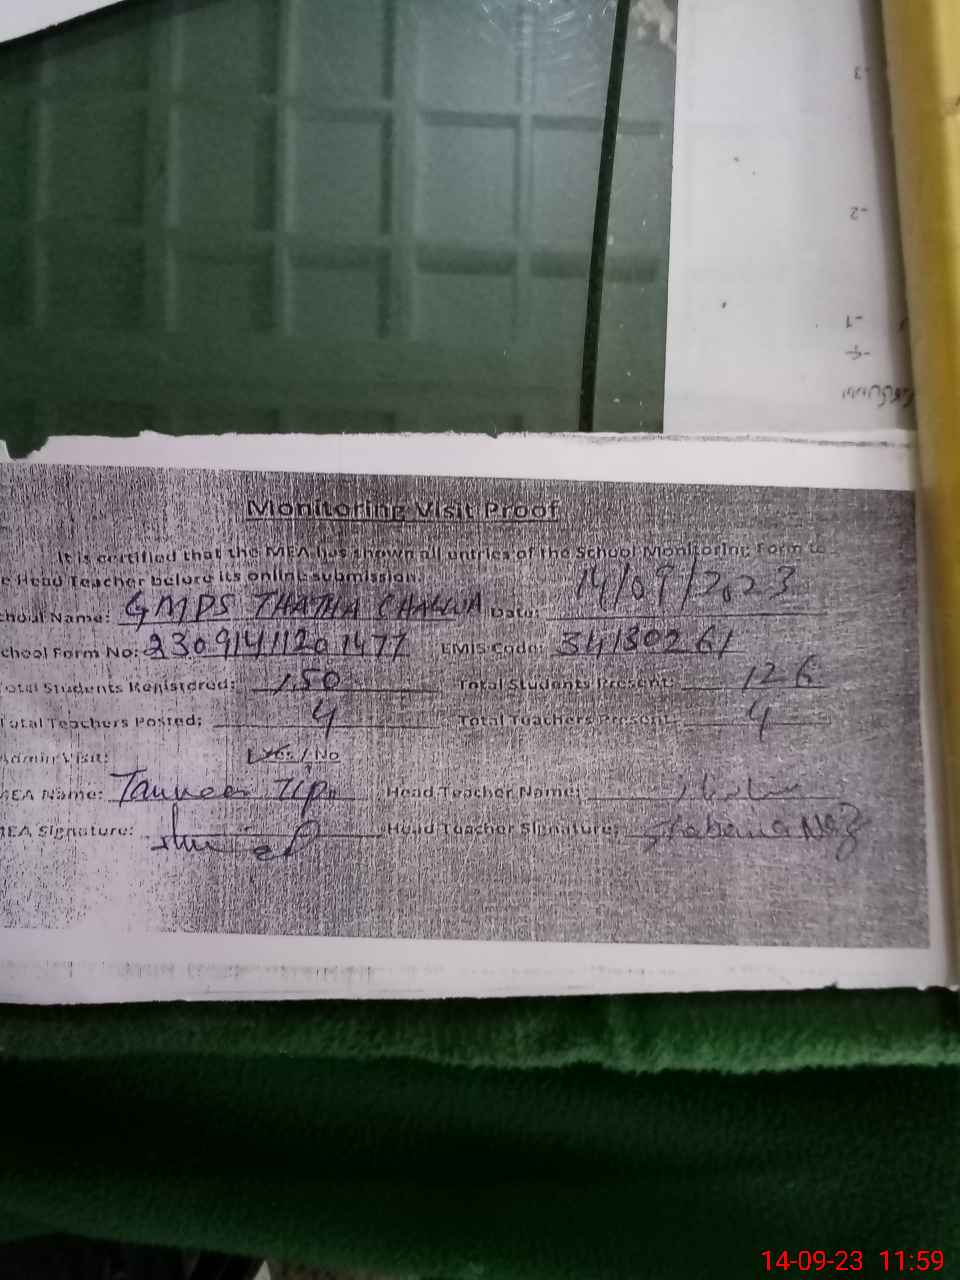 -3
-2
-1
Monitoring Visit Proof
It is certified that the MEA has shown all entries of the School Monitoring Form to
e Head Teacher before its online submission.
chool Name: GMPS THATHA CHALLUA Date: 14/09/2023
chool Form No: 23091411201477 EMIS Code: 34130261
otal Students Registered: 150 Total Students Present: 126
Total Teachers Posted: 4 Total Teachers Present: 4
Admin Visit: Yes / No
MEA Name: Tanveer Head Teacher Name:
MEA Signature: Head Teacher Signature: Shabana Naz
14-09-23 11:59